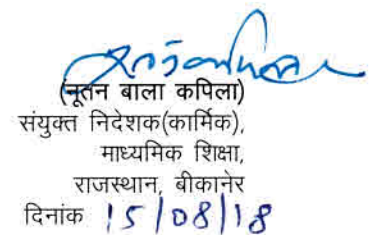 (नूतन बाला कपिला)
संयुक्त निदेशक(कार्मिक),
माध्यमिक शिक्षा,
राजस्थान, बीकानेर
दिनांक 15/08/18